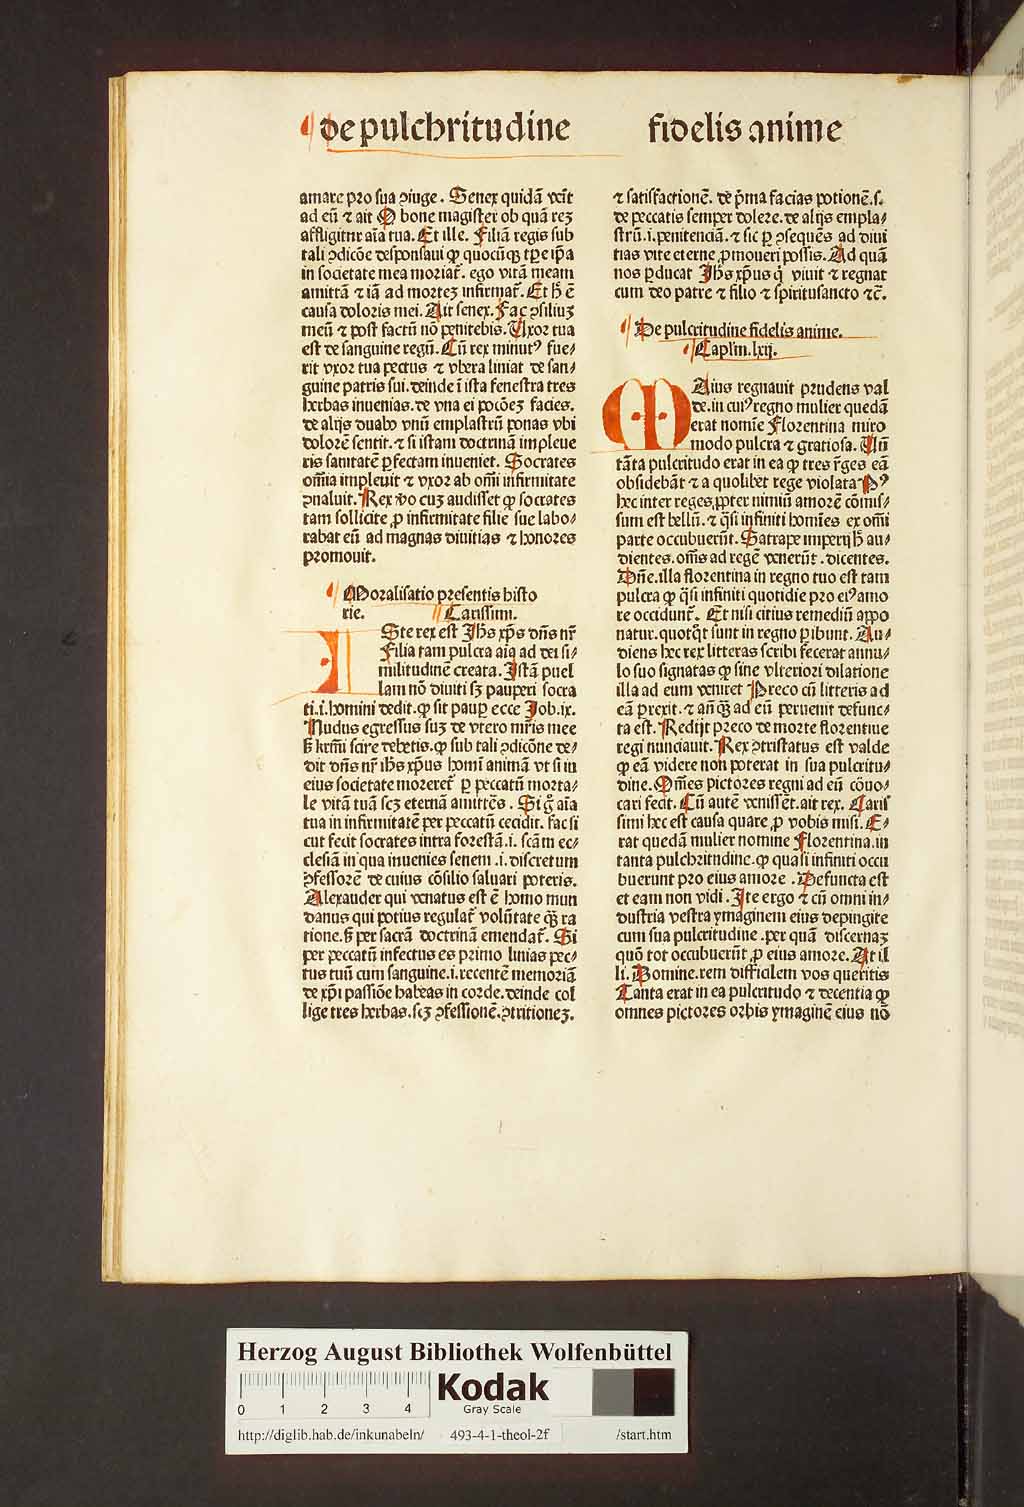 De pulchritudine fidelis anime
amare pro sua ꝯiuge. Senex quidā veīt
ad eū ⁊ ait O bone magister ob quā reꝫ
affligitur aīa tua. Et ille. Filiā regis sub
tali ꝯdicōe desponsaui ꝙ quocūqꝫ tꝑe ip̄a
in societate mea moriat᷑. ego vitā meam
amittā ⁊ iā ad morteꝫ infirmat᷑. Et h̄ ē
causa doloris mei. Ait senex. Fac ꝯsiliuꝫ
meū ⁊ post factū nō penitebis. Uxor tua
est de sanguine regū. Cū rex minutꝰ fue⸗
rit vxor tua pectus ⁊ vbera liniat de san⸗
guine patris sui. deinde ī ista fenestra tres
herbas inuenias. de vna ei pocōeꝫ facies.
de alijs duabꝰ vnū emplastrū ponas vbi
dolorē sentit. ⁊ si istam doctrinā impleue
ris sanitatē ꝑfectam inueniet. Socrates
om̄ia impleuit ⁊ vxor ab om̄i infirmitate
ꝯualuit. Rex v̄o cuꝫ audisset ꝙ socrates
tam sollicite ꝓ infirmitate filie sue labo⸗
rabat eū ad magnas diuitias ⁊ honores
promouit.
Moralisatio presentis histo
rie. Carissimi.
ISte rex est Jhs xp̄s dn̄s nr̄
Filia tam pulcra aīa ad dei si⸗
militudinē creata. Istā puel
lam nō diuiti sꝫ pauperi socra
ti .i. homini dedit. ꝙ sit pauꝑ ecce Job .ix.
Nudus egressus suꝫ de vtero mr̄is mee
ꝭ k̄rmī scire debetis. ꝙ sub tali ꝯdicōne de⸗
dit dn̄s nr̄ ihs xp̄us homī animā vt si in
eius societate moreret᷑ ꝑ peccatū morta⸗
le vitā tuā scꝫ eternā amittēs. Si g̊ aīa
tua in infirmitatē per peccatū cecidit. fac si
cut fecit socrates intra forestā .i. scām ec⸗
clesiā in qua inuenies senem .i. discretum
ꝯfessorē de cuius cōsilio saluari poteris.
Alexander qui venatus est ē homo mun
danus qui potius regulat᷑ volūtate qꝫ ra
tione. ꝭ per sacrā doctrinā emendat᷑. Si
per peccatū infectus es primo linias pec⸗
tus tuū cum sanguine .i. recentē memoriā
de xp̄i passiōe habeas in corde. deinde col
lige tres herbas. scꝫ ꝯfessionē. ꝯtritioneꝫ.
⁊ satisfactionē. de p̄ma facias potionē .s.
de peccatis semper dolere. de alijs empla⸗
strū .i. penitenciā. ⁊ sic ꝑ ꝯsequēs ad diui
tias vite eterne ꝓmoueri possis. Ad quā
nos ꝑducat Jhs xp̄us q̄ viuit ⁊ regnat
cum deo patre ⁊ filio ⁊ spiritusancto ⁊c̄.
De pulcritudine fidelis anime.
Capl'm. lxij.
MAius regnauit prudens val
de. in cuiꝰ regno mulier quedā
erat nomīe Florentina miro
modo pulcra ⁊ gratiosa. Un̄
tāta pulcritudo erat in ea ꝙ tres r̄ges eā
obsidebāt ⁊ a quolibet rege violata Pꝰ
hec inter reges ꝓpter nimiū amorē cōmis⸗
sum est bellū. ⁊ q̄si infiniti homīes ex om̄i
parte occubuerūt. Satrape imperij h̄ au⸗
dientes. om̄s ad regē venerūt. dicentes.
Dn̄e. illa florentina in regno tuo est tam
pulcra ꝙ q̄si infiniti quotidie pro eiꝰ amo
re occidunt᷑. Et nisi citius remediū appo
natur. quotq̄t sunt in regno ꝑibunt. Au⸗
diens hec rex litteras scribi fecerat annu⸗
lo suo signatas ꝙ sine vlteriori dilatione
illa ad eum veniret Preco cū litteris ad
eā ꝑrexit. ⁊ an̄qꝫ ad eū peruenit defunc⸗
ta est. Redijt preco de morte florentine
regi nunciauit. Rex ꝯtristatus est valde
ꝙ eā videre non poterat in sua pulcritu⸗
dine. Om̄es pictores regni ad eū cōuo⸗
cari fecit. Cū autē venissēt. ait rex. Caris
simi hec est causa quare ꝓ vobis misi. E⸗
rat quedam mulier nomine Florentina. in
tanta pulchritudine. ꝙ quasi infiniti occu
buerunt pro eius amore. Defuncta est
et eam non vidi. Ite ergo ⁊ cū omni in⸗
dustria vestra ymaginem eius depingite
cum sua pulcritudine. per quā discernaꝫ
quō tot occubuerūt ꝓ eius amore. At il
li. Domine. rem difficilem vos queritis
Tanta erat in ea pulcritudo ⁊ decentia ꝙ
omnes pictores orbis ymaginē eius nō
Herzog August Bibliothek Wolfenbüttel
0 1 2 3 4
Kodak
Gray Scale
http://diglib.hab.de/inkunabeln/ 493-4-1-theol-2f /start.htm